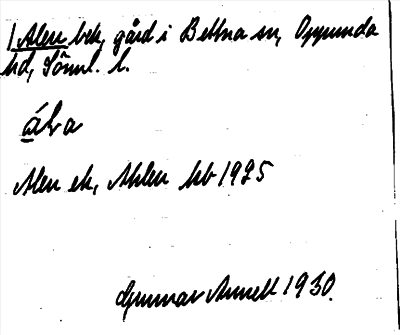 1 Alen bek, gård i Bettna sn, Oppunda
hd, Söml. l.
Alen ek, Ahlen hb 1925
Gunnar Annell 1930.